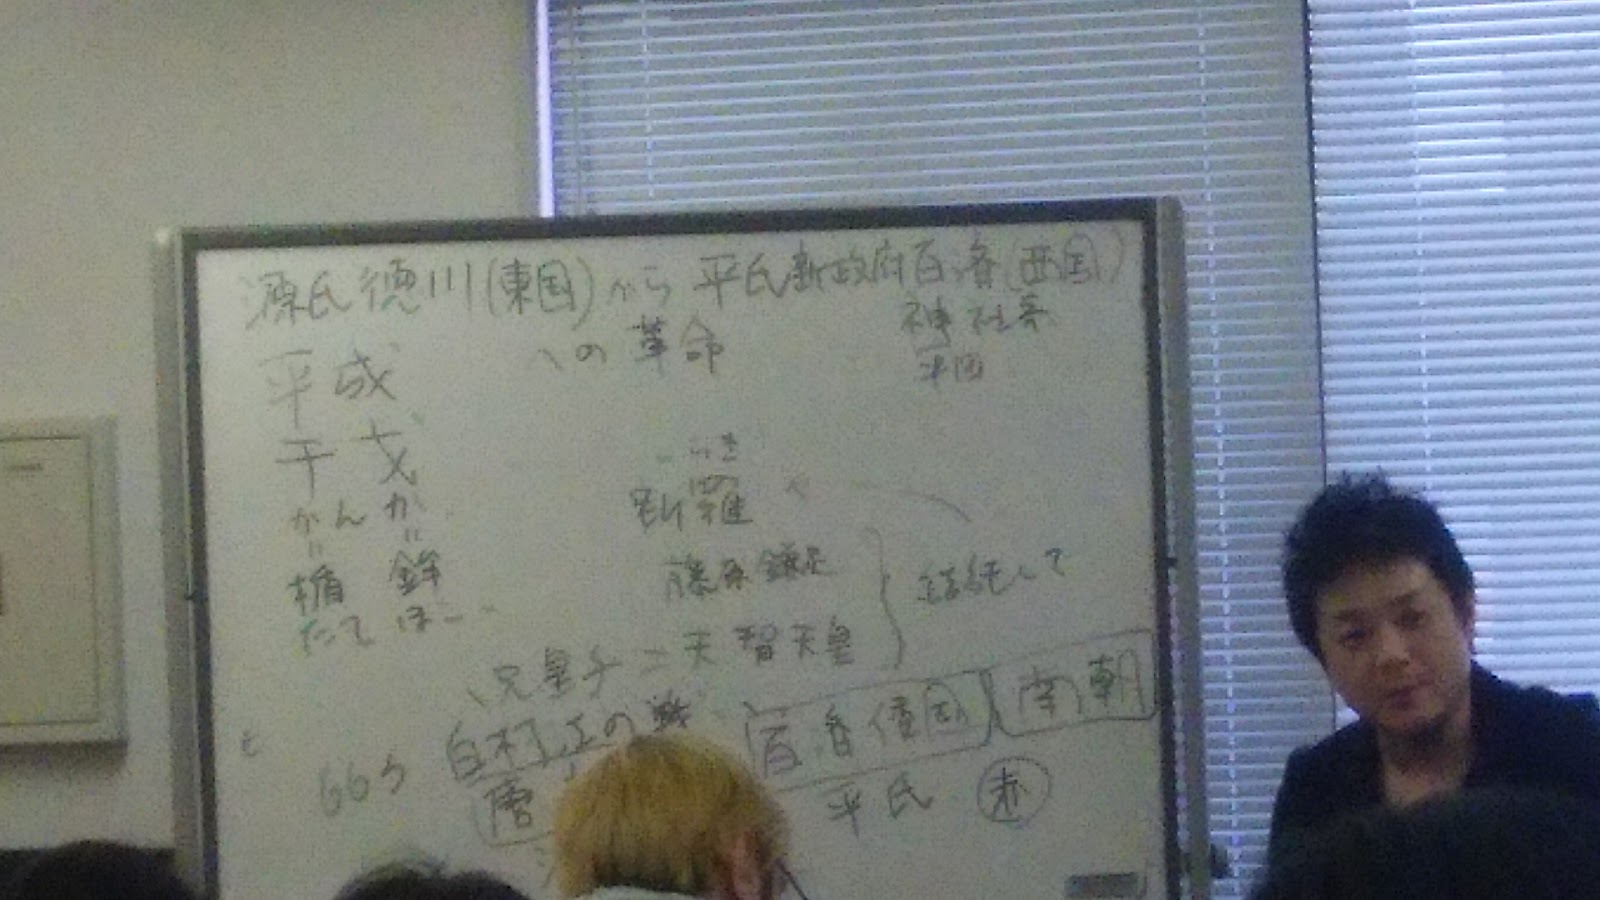 源氏徳川(東国)から平氏新政府百済(西国)
への革命
神社系
平成
干戈
かんか
楯 鉾
たて ほこ
新羅
藤原鎌足
結託して
兄皇子＝天智天皇
663 白村江の戦
百済倭国 南朝
唐
平氏 赤